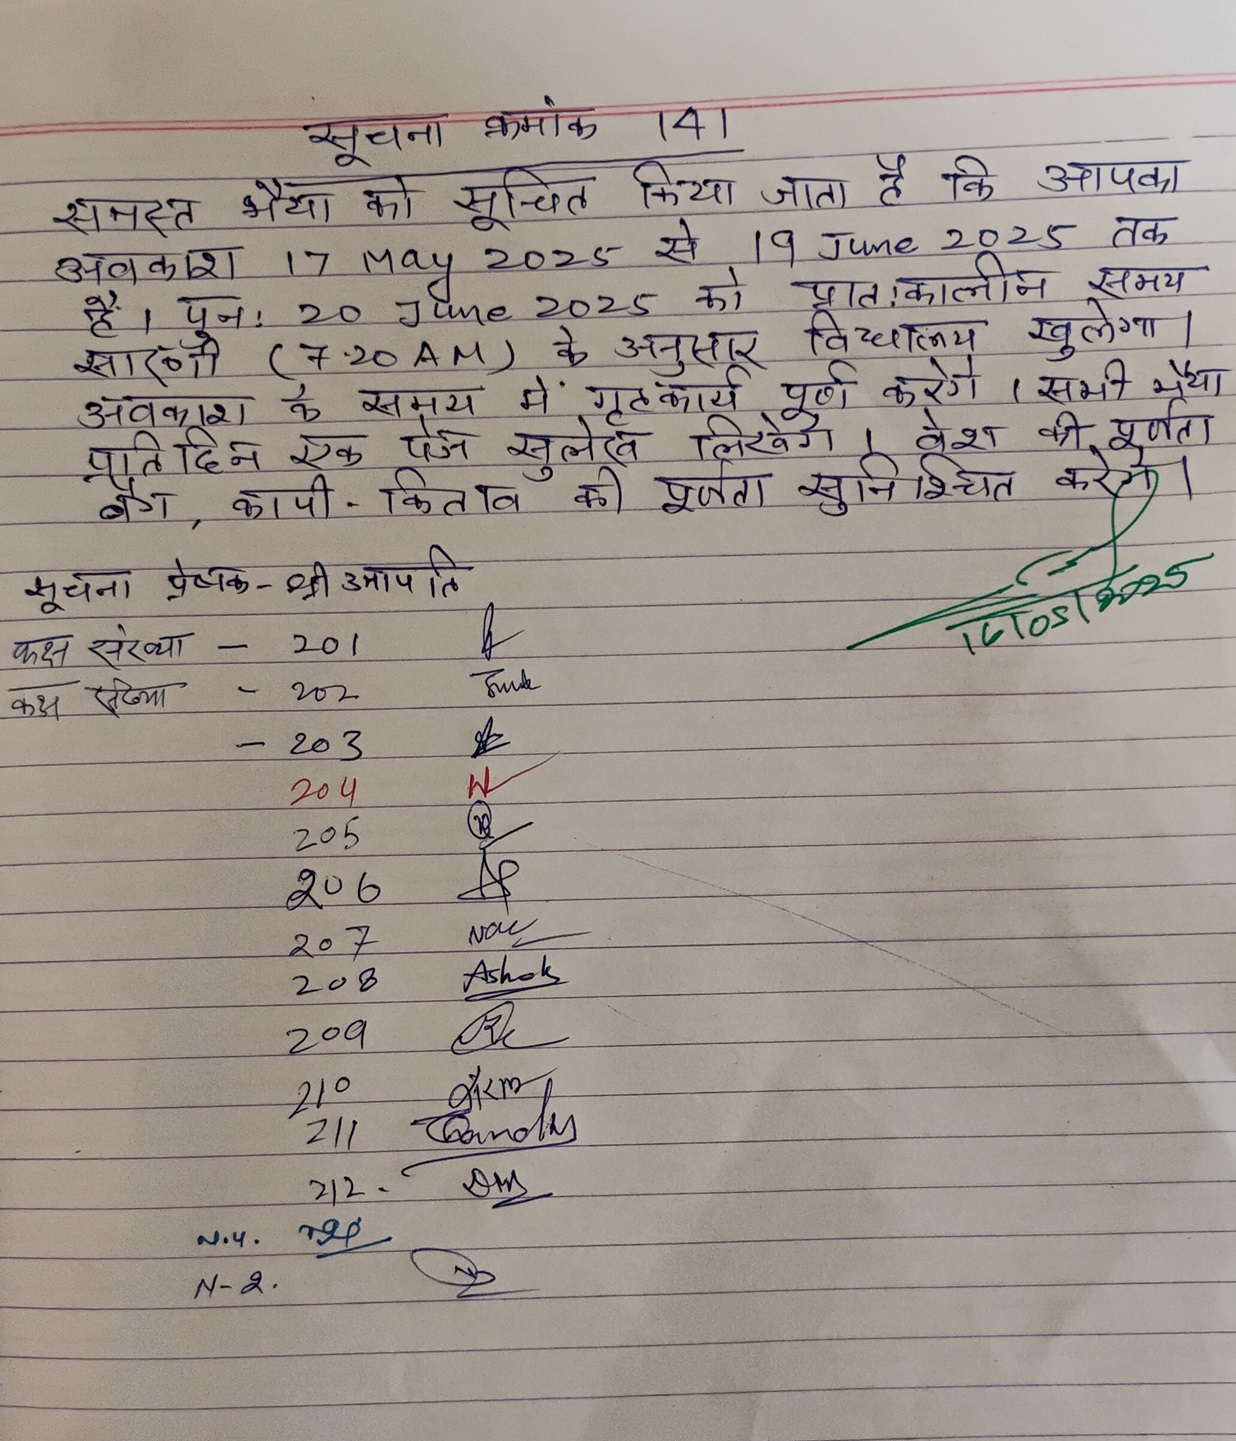 सूचना क्रमांक 141
समस्त भैया को सूचित किया जाता है कि आपका
अवकाश 17 May 2025 से 19 June 2025 तक
है। पुनः 20 June 2025 को प्रातःकालीन समय
सारणी (7.20 AM) के अनुसार विद्यालय खुलेगा।
अवकाश के समय में गृहकार्य पूर्ण करेंगे। सभी भैया
प्रतिदिन एक पेज सुलेख लिखेंगे। वेश की पूर्णता
बैग, कापी - किताब की पूर्णता सुनिश्चित करेंगे।
16/05/2025
सूचना प्रेषक - श्री उमापति
कक्ष संख्या - 201
कक्ष संख्या - 202
- 203
204
205
206
207
208 Ashok
209
210
211
212 -
N.4.
N-2.